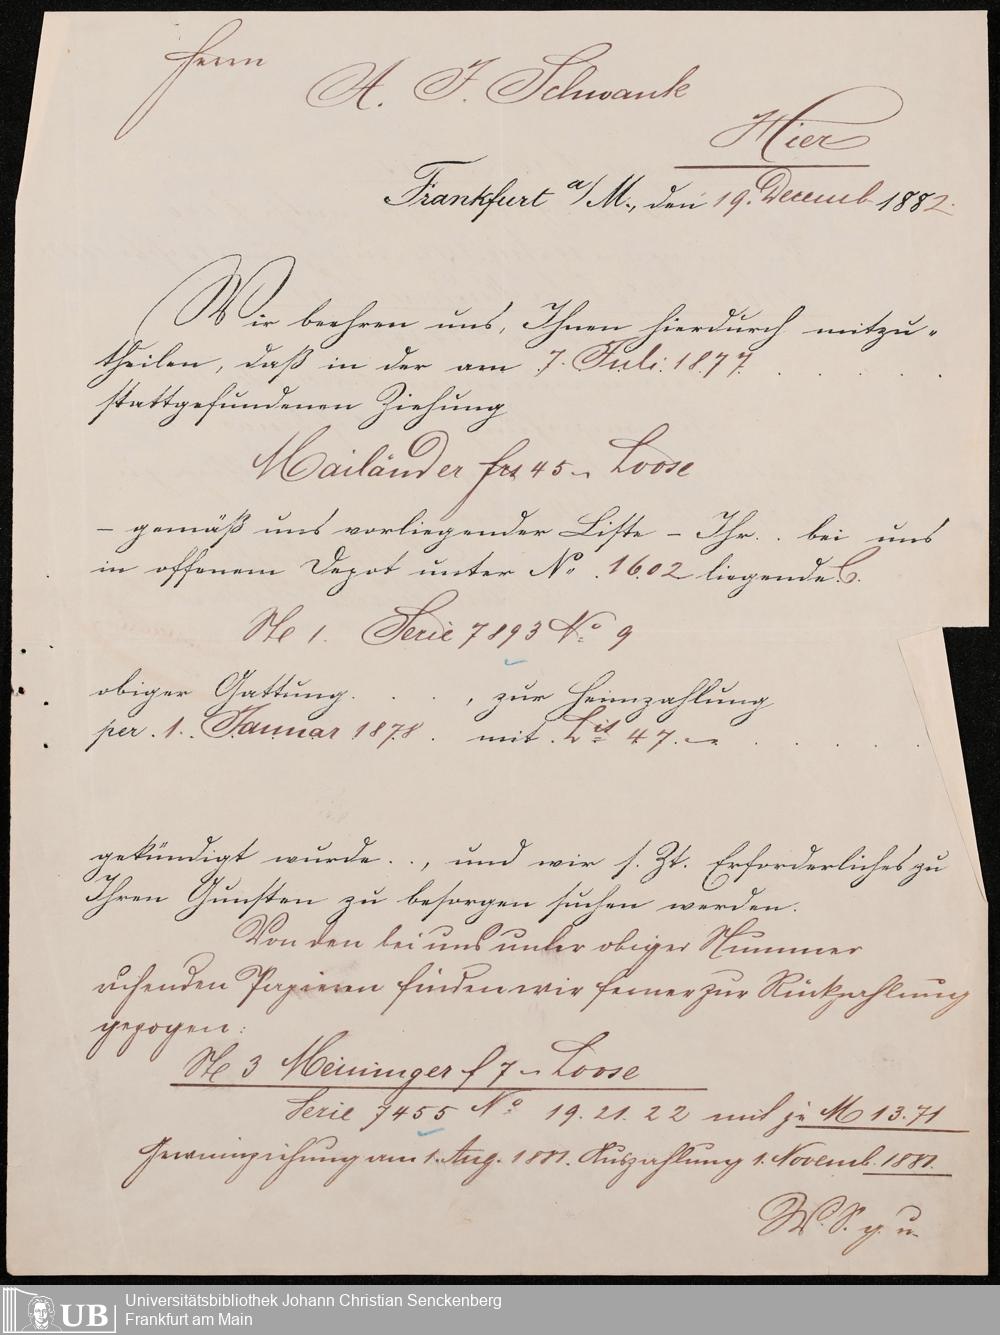 Herrn
A. F. Schwank
Hier
Frankfurt a/M., den 19. Decemb 1882.
Wir beehren uns, Ihnen hierdurch mitzu-
theilen, daß in der am 7. Juli 1877
stattgefundenen Ziehung
Mailänder frs 45 Loose
– gemäß uns vorliegender Liste – Ihr.. bei uns
in offenem Depot unter No. 1602 liegende.
St 1. Serie 7893 No 9
obiger Gattung. . . , zur Heimzahlung
per 1. Januar 1878. mit Lit 47.–
gekündigt wurde.., und wir s. Zt. Erforderliches zu
Ihren Gunsten zu besorgen suchen werden.
Von den bei uns unter obiger Nummer
ruhenden Papieren finden wir ferner zur Rückzahlung
gezogen:
St 3 Meininger f 7– Loose
Serie 7455 No 19. 21. 22 mit je M 13.71
Gewinnziehung am 1. Aug. 1881. Auszahlung 1. Novemb. 1881.
W. S. g. u.
UB
Universitätsbibliothek Johann Christian Senckenberg
Frankfurt am Main